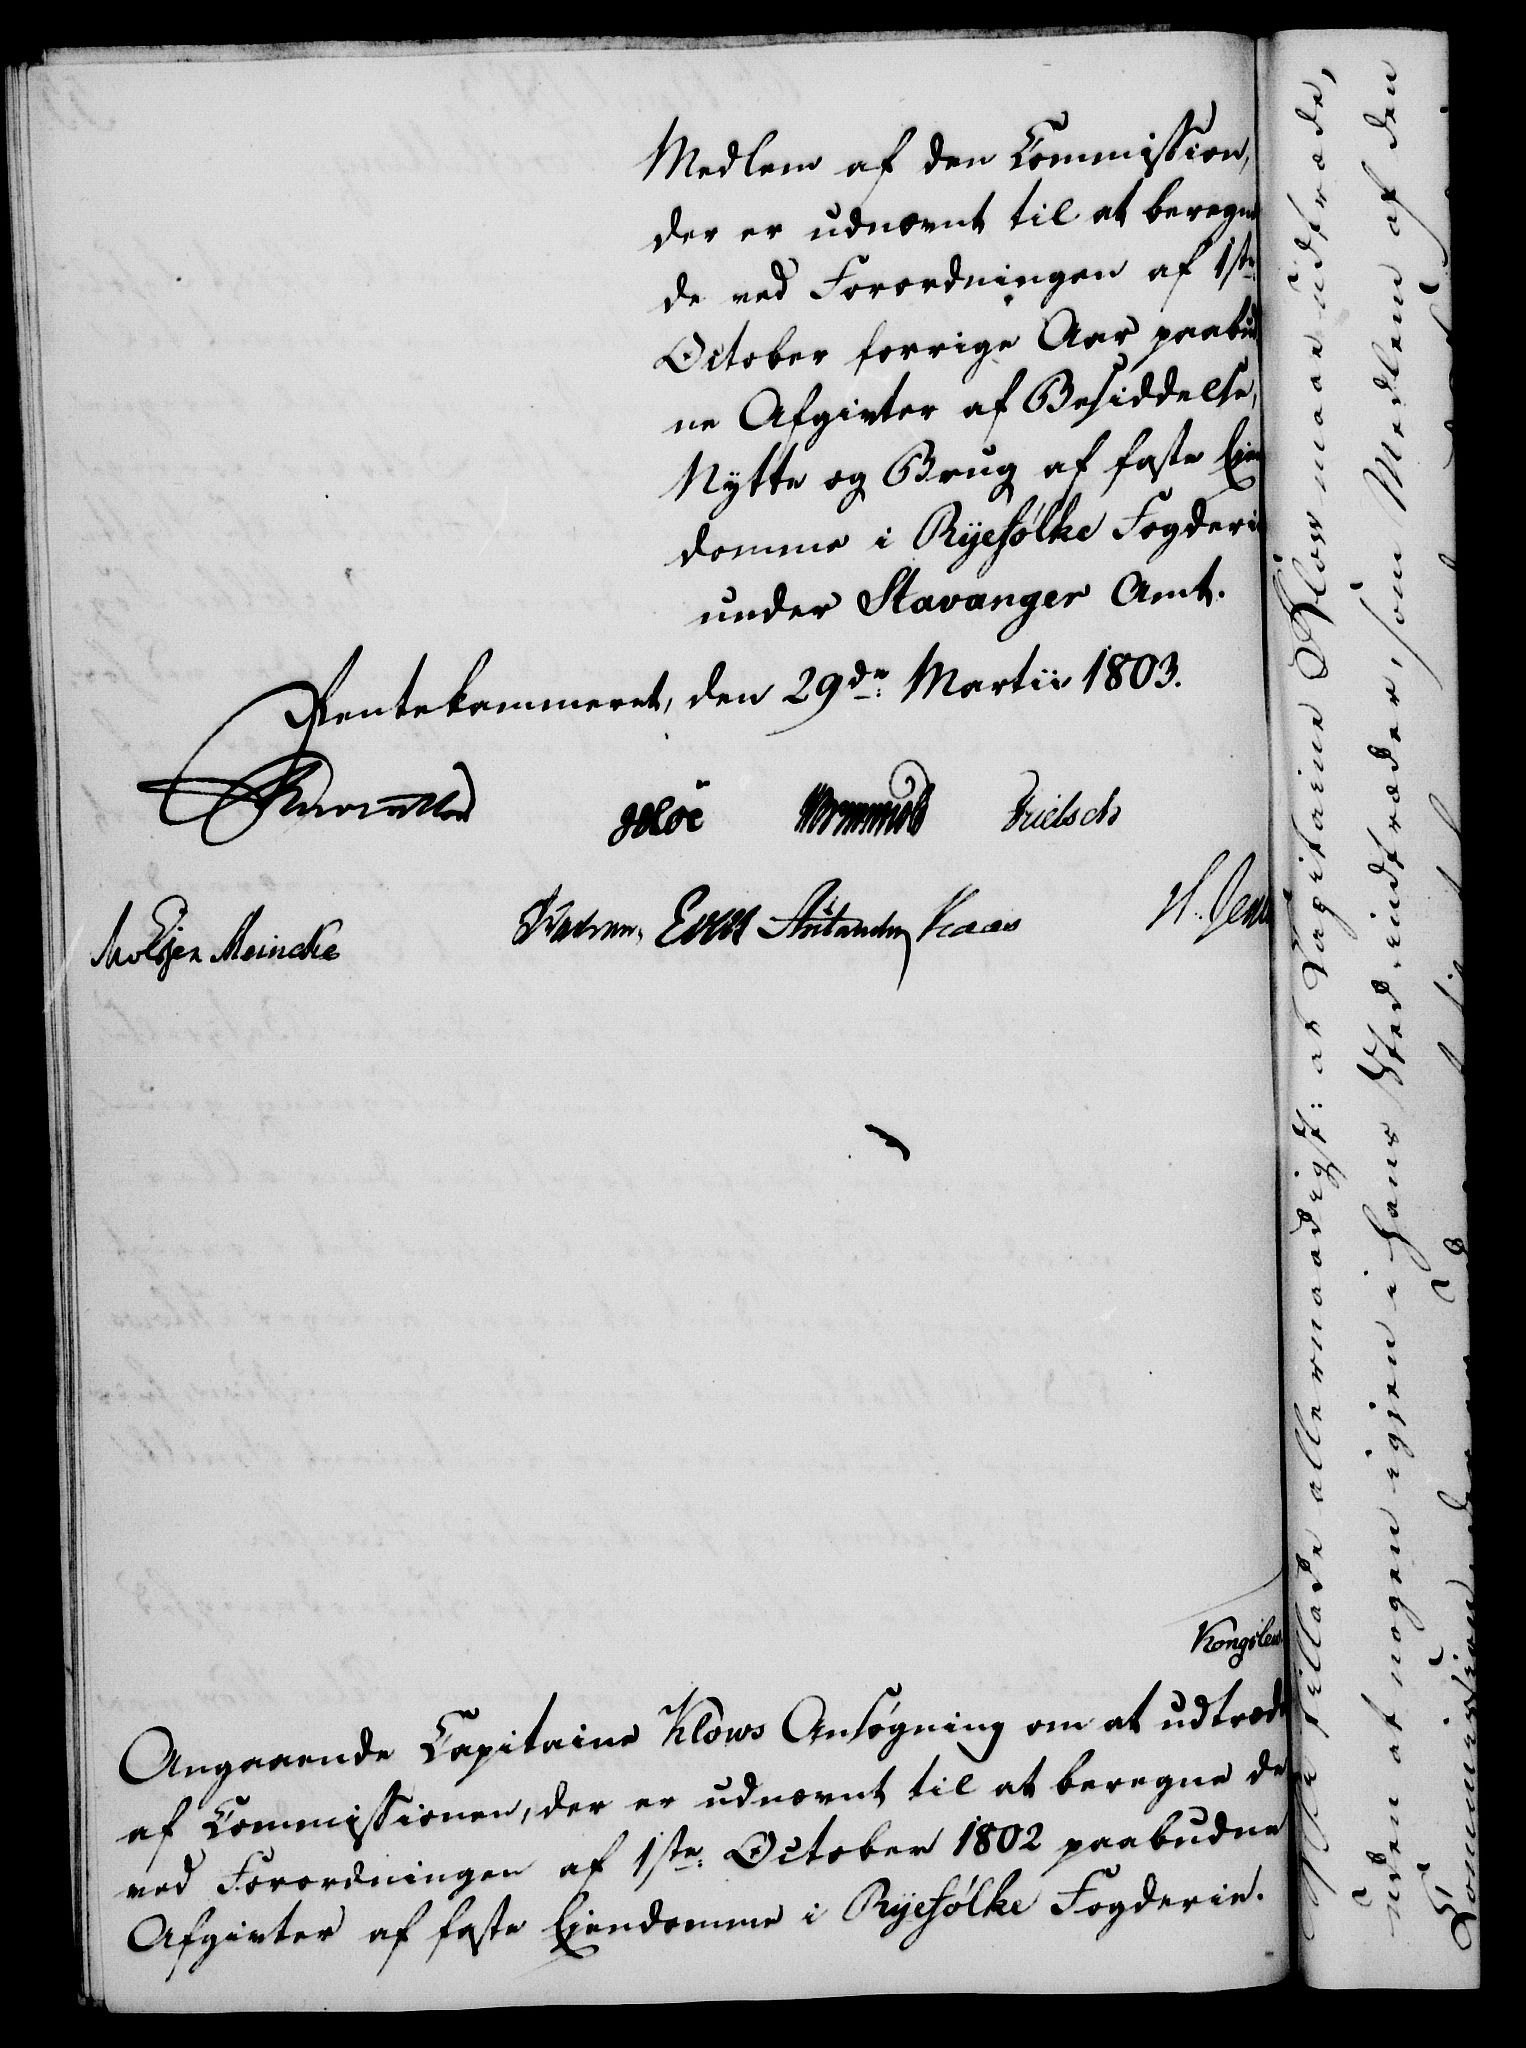 Medlem af den Commission,
der er udnævnt til at beregne
de ved Forordningen af 1ste
October forrige Aar paabud
ne Afgivter af Besiddelse,
Nytte og Brug af faste Eien
domme i Ryefølke Fogderie
under Stavanger Amt.
Rentekammeret, den 29de Martii 1803.
Kaas
Meincke
Kongslew
Angaaende Capitaine Klows Ansøgning om at udtræde
af Commissionen, der er udnævnt til at beregne de
ved Forordningen af 1ste October 1802 paabudne
Afgivter af faste Eiendomme i Ryefølke Fogderie.
Vi tillade allernaadigst: at Capitaine Klow maae udtræde,
uden at nogen igjen i hans Sted indtræder, som Medlem af den
Commission